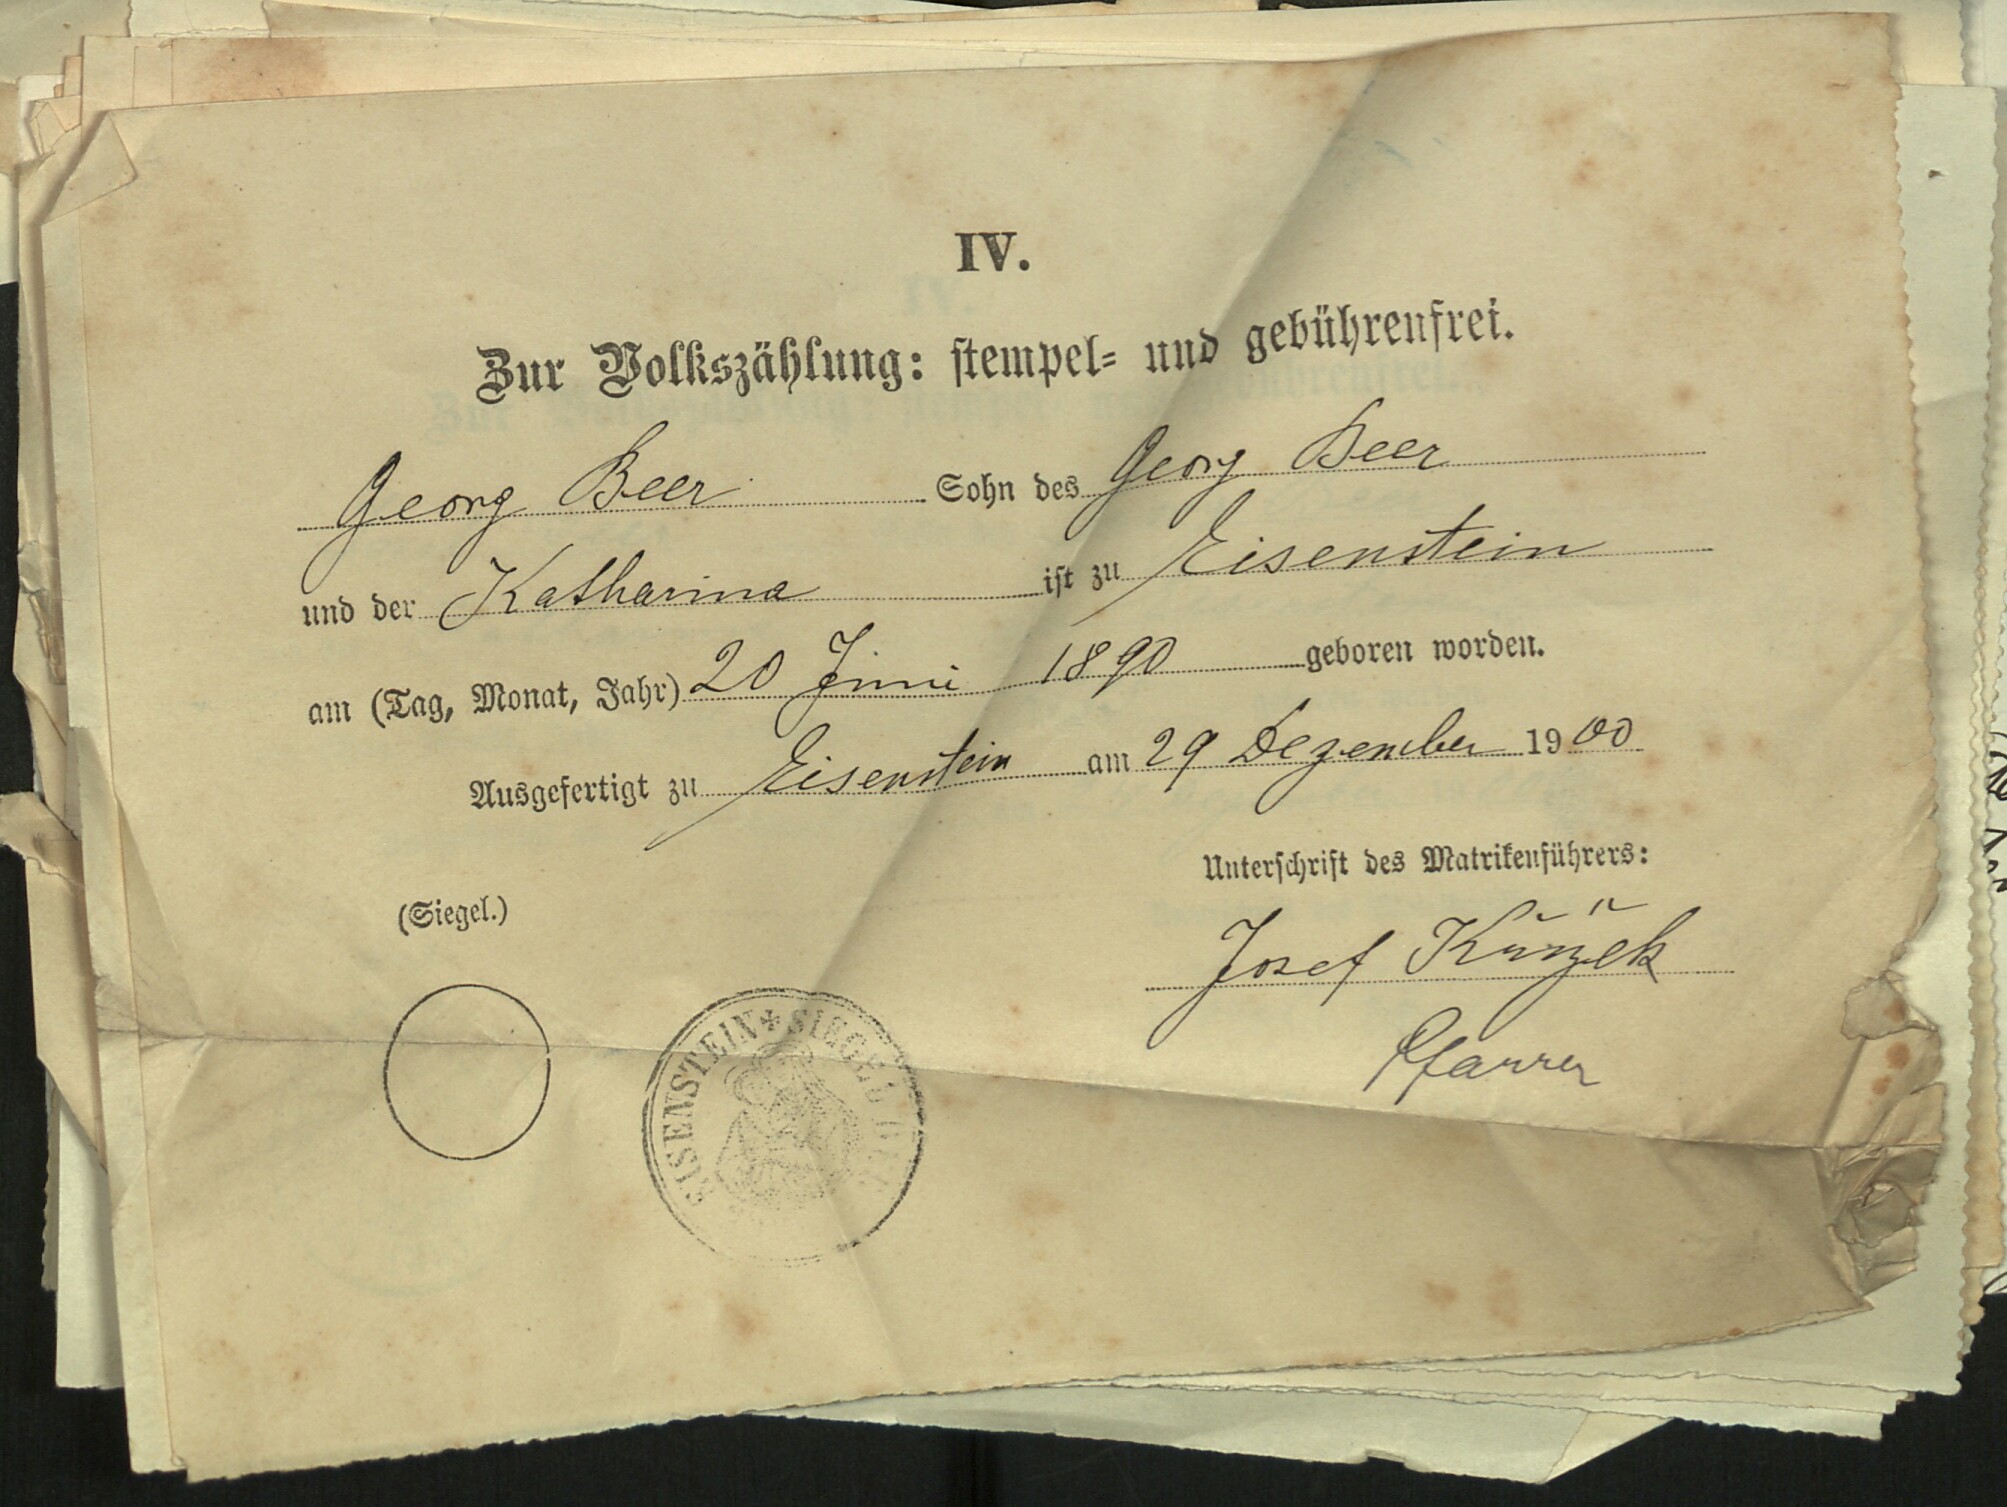 IV.
Zur Volkszählung: stempel= und gebührenfrei.
Georg Beer Sohn des Georg Beer
und der Katharina ist zu Eisenstein
am (Tag, Monat, Jahr) 20 Juni 1890 geboren worden.
Ausgefertigt zu Eisenstein am 29 Dezember 1900
Unterschrift des Matrikenführers:
(Siegel.)
Josef
Pfarrer
EISENSTEIN ✠ SIEGEL DER